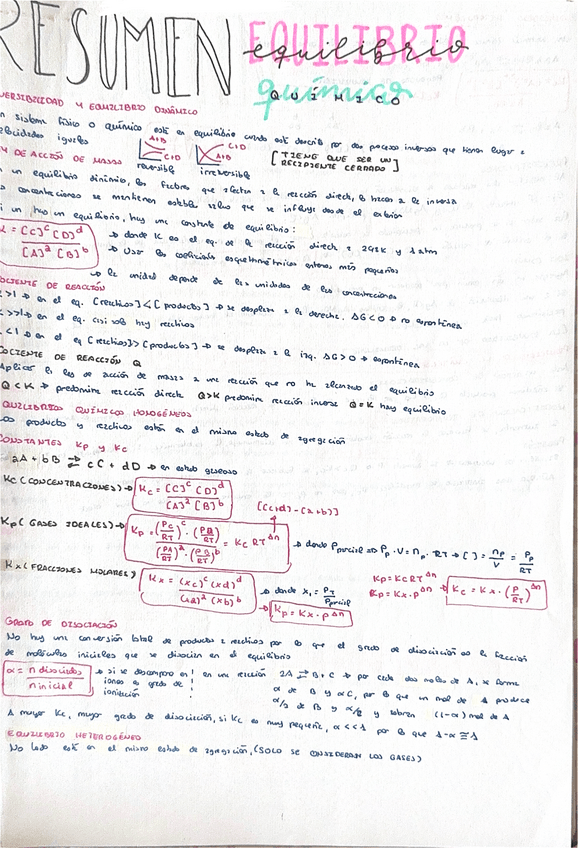 RESUMEN EQUILIBRIO
equilibrio
químico
QUÍMICO
VERSIBILIDAD Y EQUILIBRIO DINÁMICO
n sistema físico o químico está en equilibrio cuando está descrito por dos procesos inversos que tienen lugar a
elocidades iguales
A+B C+D reversible
C+D A+B irreversible
[TIENE QUE SER UN RECIPIENTE CERRADO]
Y DE ACCIÓN DE MASAS
n un equilibrio dinámico, los factores que afectan a la reacción directa, lo hacen a la inversa
s concentraciones se mantienen estables salvo que se influya desde el exterior
i un hay un equilibrio, hay una constante de equilibrio:
K = [C]^c [D]^d / [A]^a [B]^b
→ donde K es el eq. de la reacción directa a 298K y 1 atm
→ Usar los coeficientes estequiométricos enteros más pequeños
→ la unidad depende de las unidades de las concentraciones
OCIENTE DE REACCIÓN
>1 → en el eq. [reactivos]<[productos] → se desplaza a la derecha. ΔG<0 → no espontánea
>>1 → en el eq. casi solo hay reactivos
<1 → en el eq [reactivos]>[productos] → se desplaza a la izq. ΔG>0 → espontánea
COCIENTE DE REACCIÓN Q
Aplicar la ley de acción de masas a una reacción que no ha alcanzado el equilibrio
Q<K → predomina reacción directa Q>K predomina reacción inversa Q=K hay equilibrio
QUILIBRIOS QUÍMICOS HOMOGÉNEOS
os productos y reactivos están en el mismo estado de agregación
CONSTANTES Kp y Kc
aA + bB ⇌ cC + dD → en estado gaseoso
Kc (CONCENTRACIONES) → Kc = [C]^c [D]^d / [A]^a [B]^b
[(c+d) - (a+b)]
Kp (GASES IDEALES) → Kp = (Pc/RT)^c · (PD/RT)^d / (PA/RT)^a · (PB/RT)^b = Kc RT^Δn
→ donde Pparcial → Pp · V = np · RT → [ ] = np/V = Pp/RT
Kx (FRACCIONES MOLARES) Kx = (xc)^c (xd)^d / (xa)^a (xb)^b
→ donde x₁ = PT/Pparcial
→ Kp = Kx · p^Δn
Kp = Kc RT^Δn
Kp = Kx · p^Δn → Kc = Kx · (P/RT)^Δn
GRADO DE DISOCIACIÓN
No hay una conversión total de productos a reactivos por lo que el grado de disociación es la fracción
de moléculas iniciales que se disocian en el equilibrio
α = n disociados / n inicial
→ si se descompone en iones es grado de ionización
en una reacción 2A ⇌ B + C → por cada dos moles de A, se forma
α de B y αC, por lo que un mol de A produce
α/2 de B y α/2 y sobran (1-α) mol de A
A mayor Kc, mayor grado de disociación, si Kc es muy pequeña, α<<1 por lo que 1-α ≅ 1
EQUILIBRIO HETEROGÉNEO
No todo está en el mismo estado de agregación, (SOLO SE CONSIDERAN LOS GASES)